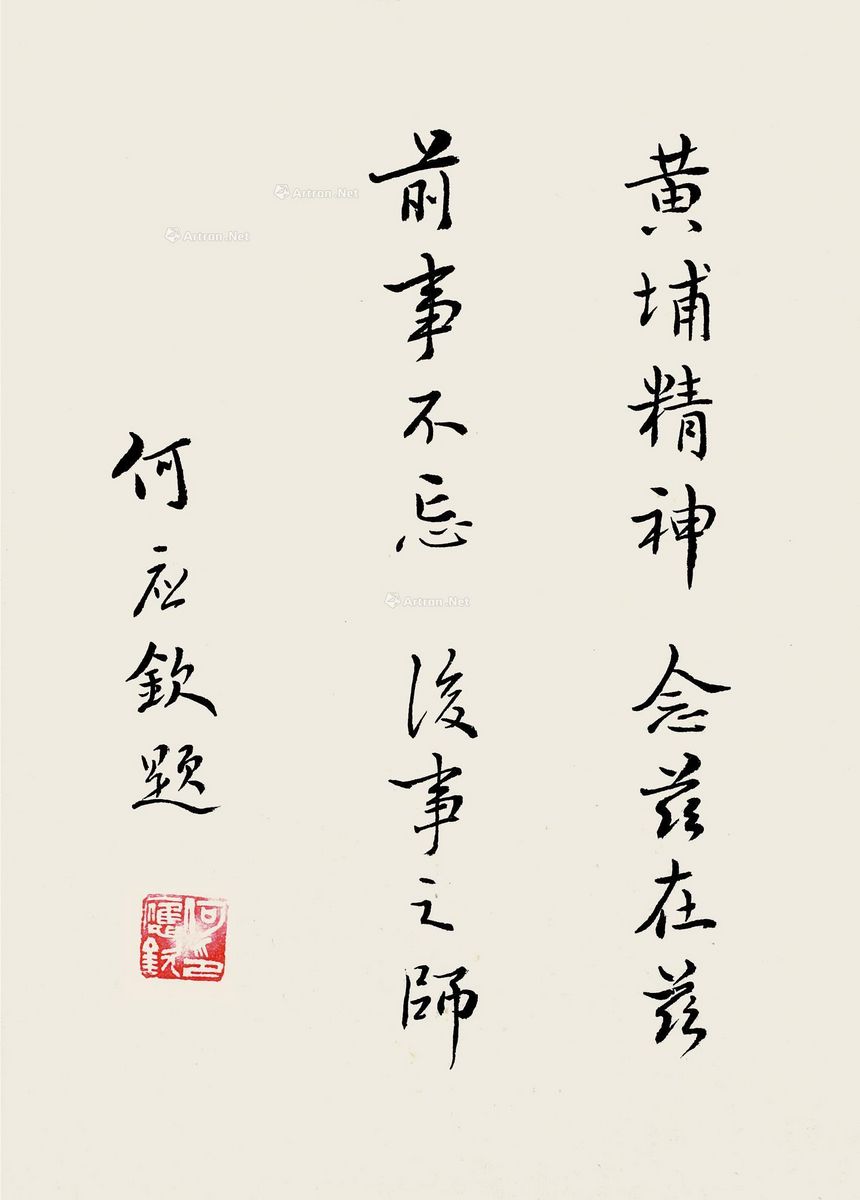 黃埔精神 念茲在茲
前事不忘 後事之師
何应欽題
何應欽印
Artron.Net
Artron.Net
Artron.Net